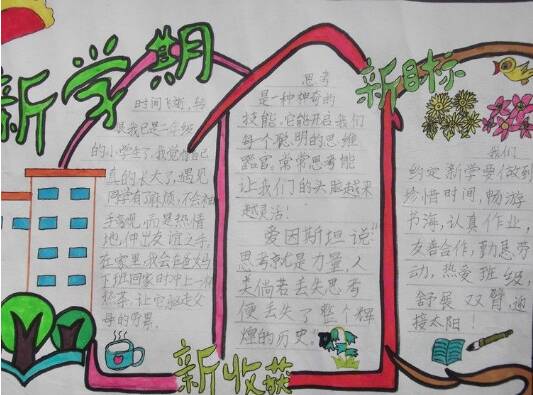 新学期
时间飞逝，转
眼我已是一年级
的小学生了，我觉得自己
真的长大了，遇见
同学有麻烦，不会袖
手旁观，而是热情
地，伸出友谊之手，
在家里，我会在爸妈
下班回家时冲上一杯
热茶，让它驱走父
母的劳累。
思考
是一种神奇的
技能，它能开启我们
每个聪明的思维
常常思考能
让我们的头脑越来
越灵活！
爱因斯坦说"
思考就是力量，人
类倘若丢失思考
便丢失了整个辉
煌的历史"
新收获
新目标
我们
约定新学要做到
珍惜时间，畅游
书海，认真作业，
友善合作，勤恳劳
动，热爱班级，
舒展双臂，迎
接太阳！